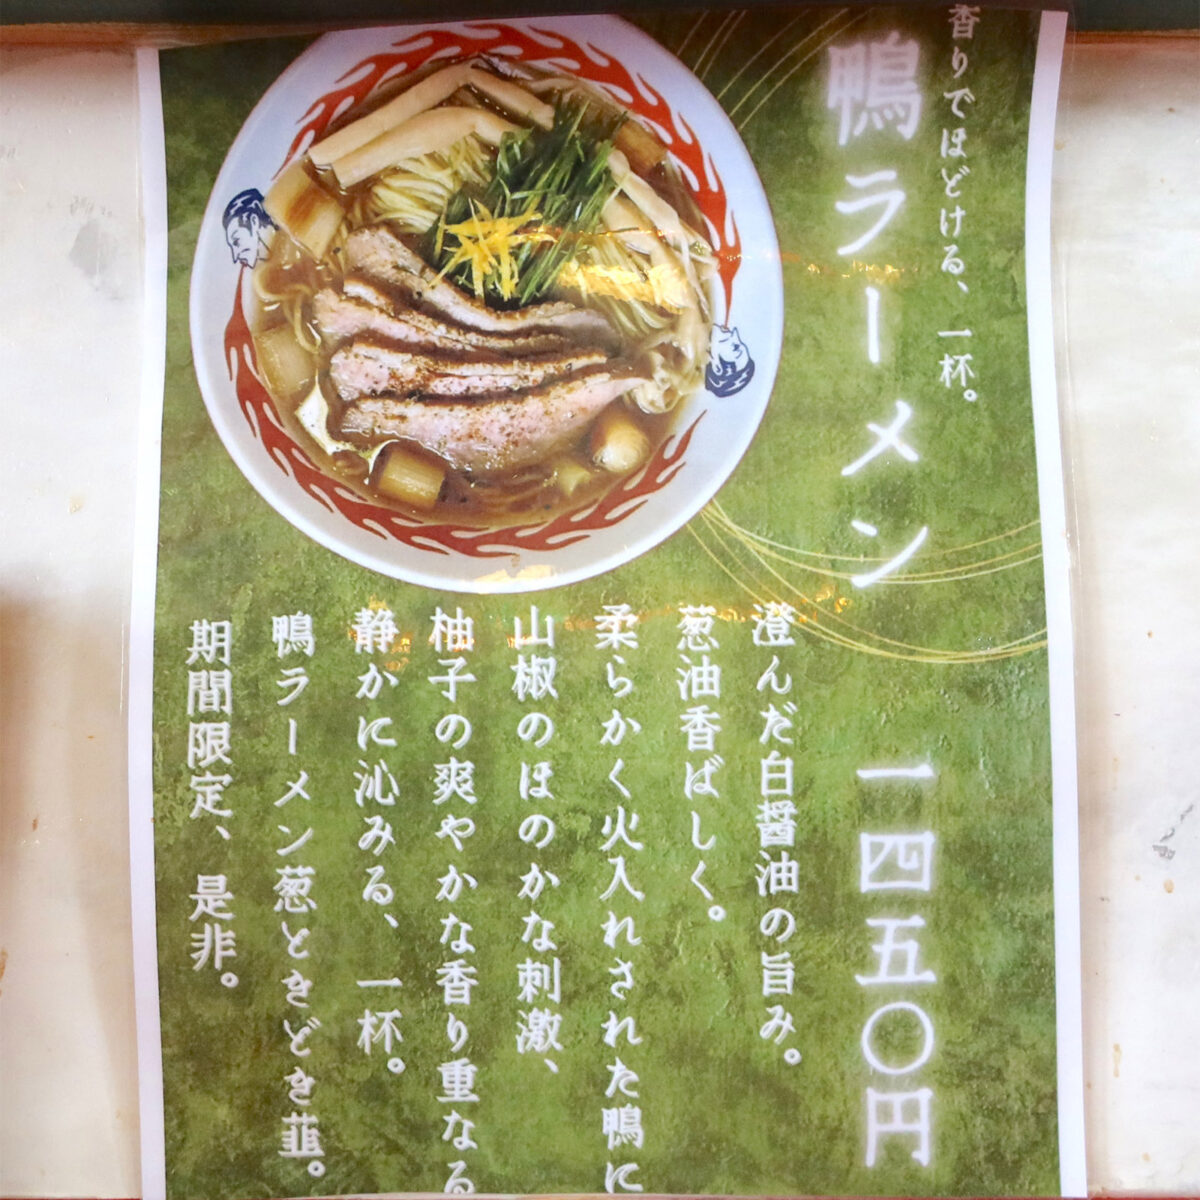 香りでほどける、一杯。
鴨ラーメン 一四五〇円
澄んだ白醤油の旨み。
葱油香ばしく。
柔らかく火入れされた鴨に
山椒のほのかな刺激、
柚子の爽やかな香り重なる
静かに沁みる、一杯。
鴨ラーメン葱ときどき韮。
期間限定、是非。